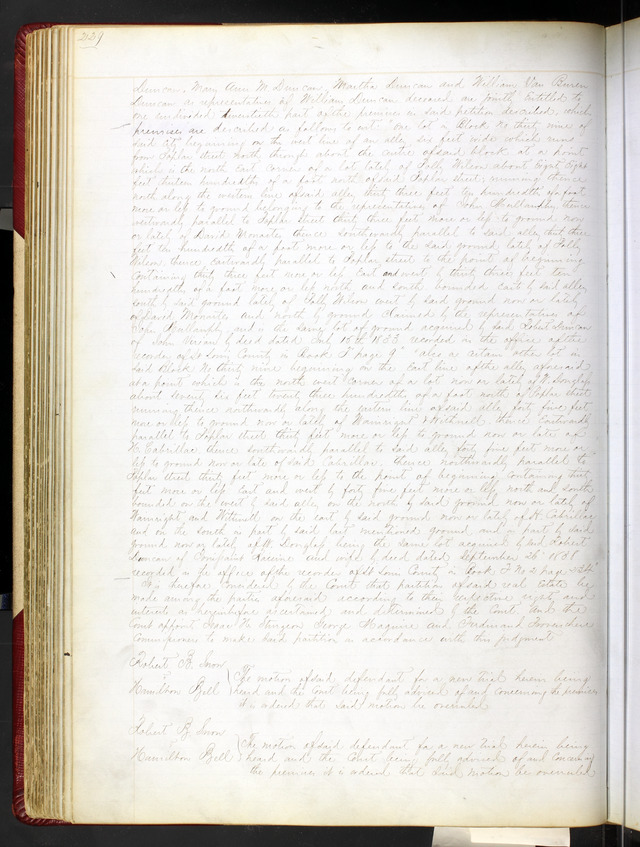 229
Duncan, Mary Ann M Duncan, Martha Duncan and William Van Buren
Duncan as representatives of William Duncan deceased are jointly Entitled to
one undivided twentieth part of the premises in said petition described which
premises are described as follows to wit: one lot in Block No thirty nine of
said City beginning on the west line of an alley six feet wide which runs
from Poplar street north through about the centre of said block at a point
which is the north East corner of a lot lately of Wilson about Eight Eight
feet hundredths of a foot north of said Poplar street, running thence
north along the western line of said alley thirty three feet ten hundredths of a foot
more or less to ground belonging to the representatives of John Mullanphy thence
westwardly parallel to Poplar street thirty three feet more or less to ground now
or lately of David thence southwardly parallel to said alley thirty three
feet ten hundredths of a foot more or less to the said ground lately of
Wilson thence Eastwardly parallel to Poplar street to the point of beginning
Containing thirty three feet more or less East and west by thirty three feet ten
hundredths of a foot more or less north and south bounded east by said alley
south by said ground lately of Wilson west by said ground now or lately
of David and north by ground claimed by the representatives of
John Mullanphy and is the same lot of ground acquired by said Robert Duncan
of John by deed dated July 15th 1833 recorded in the office of the
recorder of St Louis County in Book T page 9 " also a certain other lot in
said Block No thirty nine beginning on the East line of the alley aforesaid
at a point which is the north west corner of a lot now or lately of
about seventy six feet twenty three hundredths of a foot north of Poplar street
running thence northwardly along the eastern line of said alley forty five feet
more or less to ground now or lately of Wainright & Withnell thence Eastwardly
parallel to Poplar street thirty feet more or less to ground now or late of
H. Cabrillac thence southwardly parallel to said alley forty five feet more or
less to ground now or late of said Cabrillac thence northwardly parallel to
Poplar street thirty feet more or less to the point of beginning containing thirty
feet more or less East and west by forty five feet more or less north and south
bounded on the west by said alley on the north by said ground now or lately of
Wainright and Withnell on the East by said ground now or lately of H. Cabrillac
and on the south in part by said last mentioned ground and in part by said
ground now or lately of being the same lot acquired by said Robert
Duncan of and wife by deed dated September 26th 1838
recorded in the office of the recorder of St Louis County in Book No 2 page
It is therefore considered by the Court that partition of said real Estate be
made among the parties aforesaid according to their respective rights and
interests as hereinbefore ascertained and determined by the Court and the
Court appoint Isaac H Sturgeon George Maguire and Ferdinand
Commissioners to make said partition in accordance with this judgment
Robert B. Snow
vs
Hamilton Bell
The motion of said defendant for a new trial herein being
heard and the Court being fully advised of and concerning the premises
it is ordered that said motion be overruled
Robert B. Snow
vs
Hamilton Bell
The motion of said defendant for a new trial herein being
heard and the Court being fully advised of and concerning
the premises it is ordered that said motion be overruled